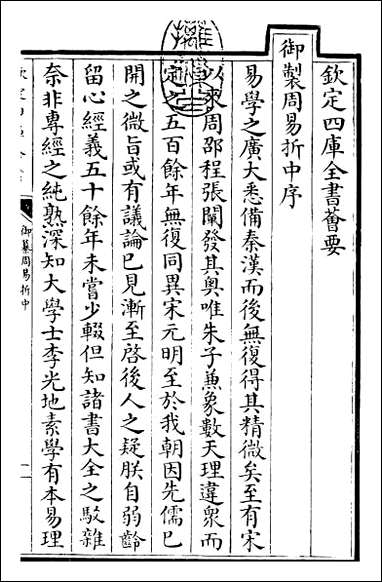 欽定四庫全書薈要
御製周易折中序
易學之廣大悉備秦漢而後無復得其精微矣至有宋
以來周邵程張闡發其奥唯朱子兼象數天理違衆而
定之五百餘年無復同異宋元明至於我朝因先儒已
開之微旨或有議論已見漸至啓後人之疑朕自弱齡
留心經義五十餘年未嘗少輟但知諸書大全之駁雜
奈非專經之純熟深知大學士李光地素學有本易理
御纂周易折中
一